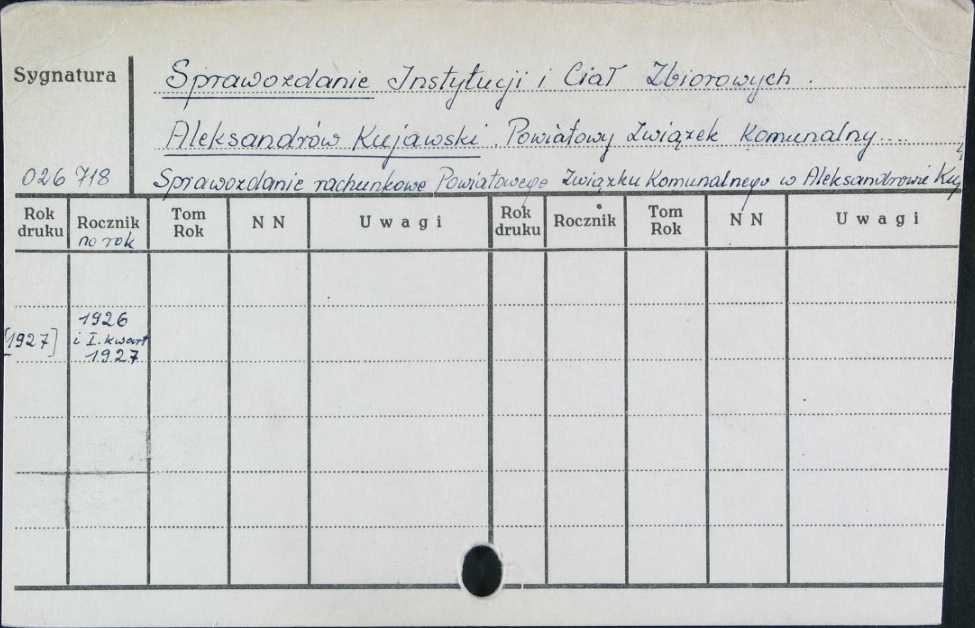 Sygnatura
Sprawozdanie Instytucji i Ciał Zbiorowych.
Aleksandrów Kujawski. Powiatowy Związek Komunalny...
026 718
Sprawozdanie rachunkowe Powiatowego Związku Komunalnego w Aleksandrowie Kuj
Rok druku Rocznik Tom Rok NN Uwagi Rok druku Rocznik Tom Rok NN Uwagi
na rok
1926
[1927] i I. kwart
1927